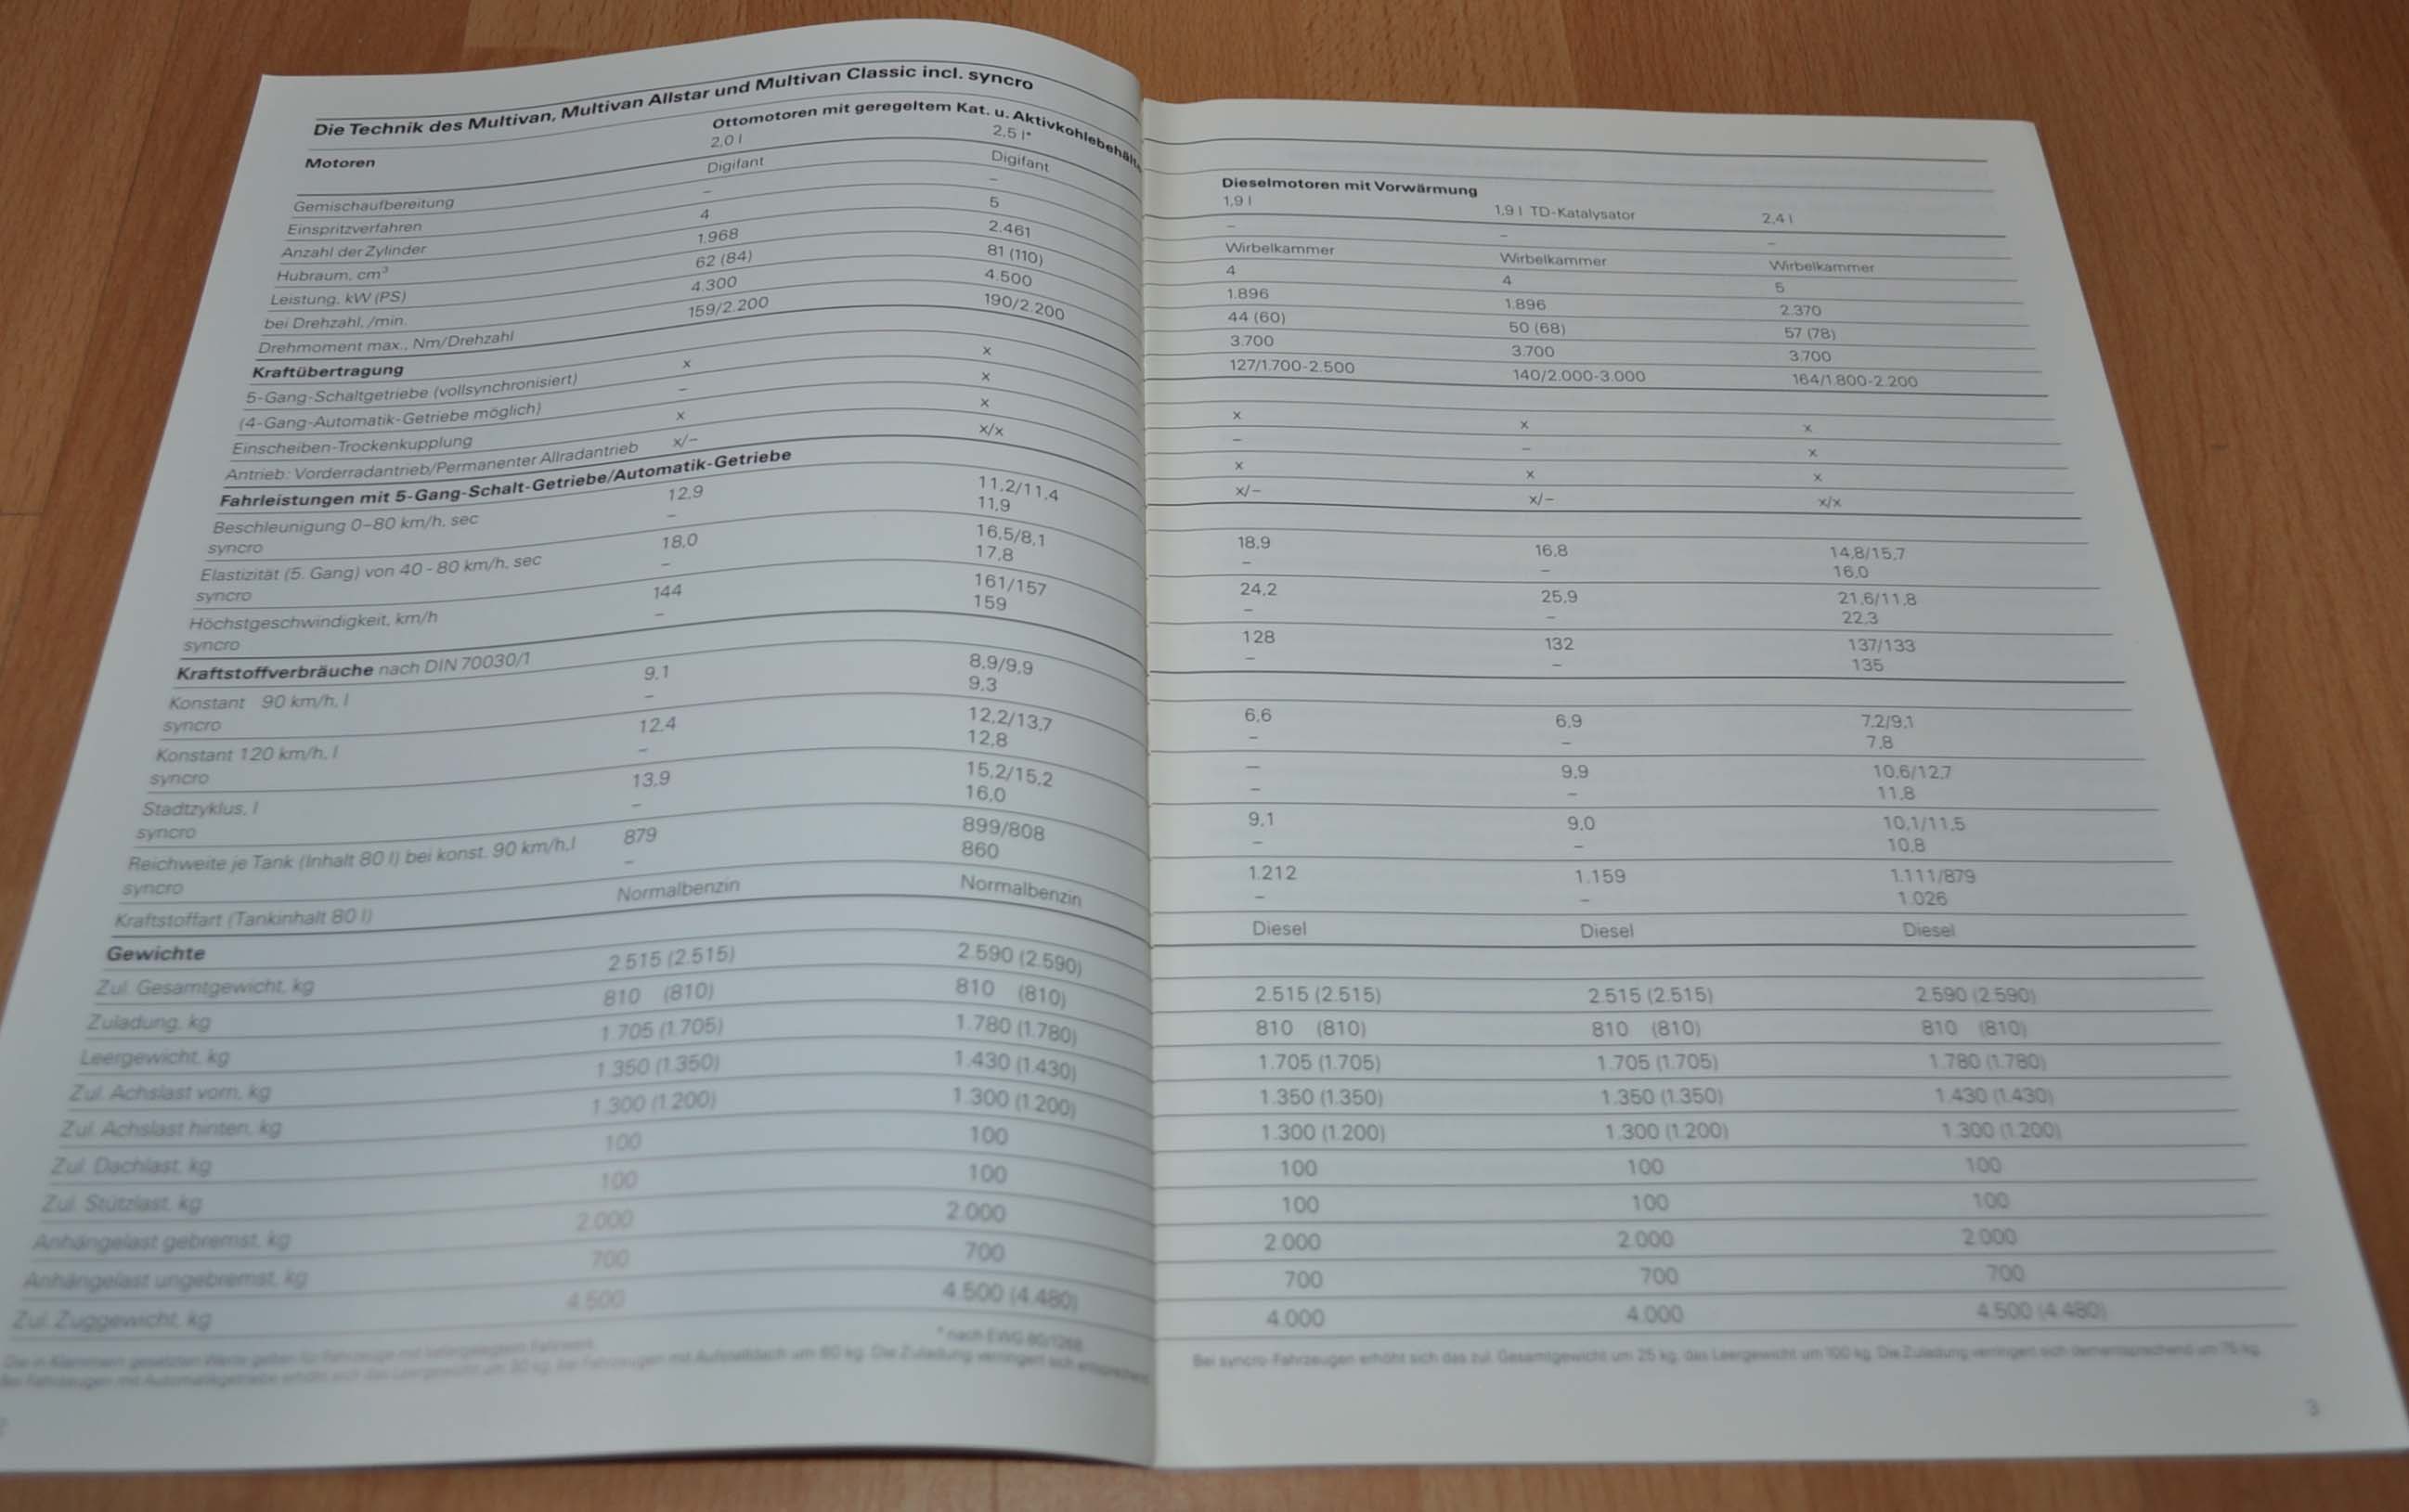 Die Technik des Multivan, Multivan Allstar und Multivan Classic incl. syncro
Motoren Ottomotoren mit geregeltem Kat. u. Aktivkohlebehält
2,0 l 2,5 l*
Gemischaufbereitung Digifant Digifant
Einspritzverfahren – –
Anzahl der Zylinder 4 5
Hubraum, cm³ 1.968 2.461
Leistung, kW (PS) 62 (84) 81 (110)
bei Drehzahl, /min. 4.300 4.500
Drehmoment max., Nm/Drehzahl 159/2.200 190/2.200
Kraftübertragung
5-Gang-Schaltgetriebe (vollsynchronisiert) x x
(4-Gang-Automatik-Getriebe möglich) – x
Einscheiben-Trockenkupplung x x
Antrieb: Vorderradantrieb/Permanenter Allradantrieb x/– x/x
Fahrleistungen mit 5-Gang-Schalt-Getriebe/Automatik-Getriebe
Beschleunigung 0–80 km/h, sec 12,9 11,2/11,4
syncro – 11,9
Elastizität (5. Gang) von 40 - 80 km/h, sec 18,0 16,5/8,1
syncro – 17,8
Höchstgeschwindigkeit, km/h 144 161/157
syncro – 159
Kraftstoffverbräuche nach DIN 70030/1
Konstant 90 km/h, l 9,1 8,9/9,9
syncro – 9,3
Konstant 120 km/h, l 12,4 12,2/13,7
syncro – 12,8
Stadtzyklus, l 13,9 15,2/15,2
syncro – 16,0
Reichweite je Tank (Inhalt 80 l) bei konst. 90 km/h,l 879 899/808
syncro – 860
Kraftstoffart (Tankinhalt 80 l) Normalbenzin Normalbenzin
Gewichte
Zul. Gesamtgewicht, kg 2.515 (2.515) 2.590 (2.590)
Zuladung, kg 810 (810) 810 (810)
Leergewicht, kg 1.705 (1.705) 1.780 (1.780)
Zul. Achslast vorn, kg 1.350 (1.350) 1.430 (1.430)
Zul. Achslast hinten, kg 1.300 (1.200) 1.300 (1.200)
Zul. Dachlast, kg 100 100
Zul. Stützlast, kg 100 100
Anhängelast gebremst, kg 2.000 2.000
Anhängelast ungebremst, kg 700 700
Zul. Zuggewicht, kg 4.500 4.500 (4.480)
* nach EWG 80/1268
Die in Klammern gesetzten Werte gelten für Fahrzeuge mit tiefergelegtem Fahrwerk.
Bei Fahrzeugen mit Automatikgetriebe erhöht sich das Leergewicht um kg, bei Fahrzeugen mit Aufstelldach um kg. Die Zuladung verringert sich
Dieselmotoren mit Vorwärmung
1,9 l 1,9 l TD-Katalysator 2,4 l
– – –
Wirbelkammer Wirbelkammer Wirbelkammer
4 4 5
1.896 1.896 2.370
44 (60) 50 (68) 57 (78)
3.700 3.700 3.700
127/1.700-2.500 140/2.000-3.000 164/1.800-2.200
x x x
– – x
x x x
x/– x/– x/x
18,9 16,8 14,8/15,7
– – 16,0
24,2 25,9 21,6/11,8
– – 22,3
128 132 137/133
– – 135
6,6 6,9 7,2/9,1
– – 7,8
– 9,9 10,6/12,7
– – 11,8
9,1 9,0 10,1/11,5
– – 10,8
1.212 1.159 1.111/879
– – 1.026
Diesel Diesel Diesel
2.515 (2.515) 2.515 (2.515) 2.590 (2.590)
810 (810) 810 (810) 810 (810)
1.705 (1.705) 1.705 (1.705) 1.780 (1.780)
1.350 (1.350) 1.350 (1.350) 1.430 (1.430)
1.300 (1.200) 1.300 (1.200) 1.300 (1.200)
100 100 100
100 100 100
2.000 2.000 2.000
700 700 700
4.000 4.000 4.500 (4.480)
Bei syncro-Fahrzeugen erhöht sich das zul. Gesamtgewicht um 25 kg, das Leergewicht um 100 kg. Die Zuladung verringert sich dementsprechend um 75 kg.
3